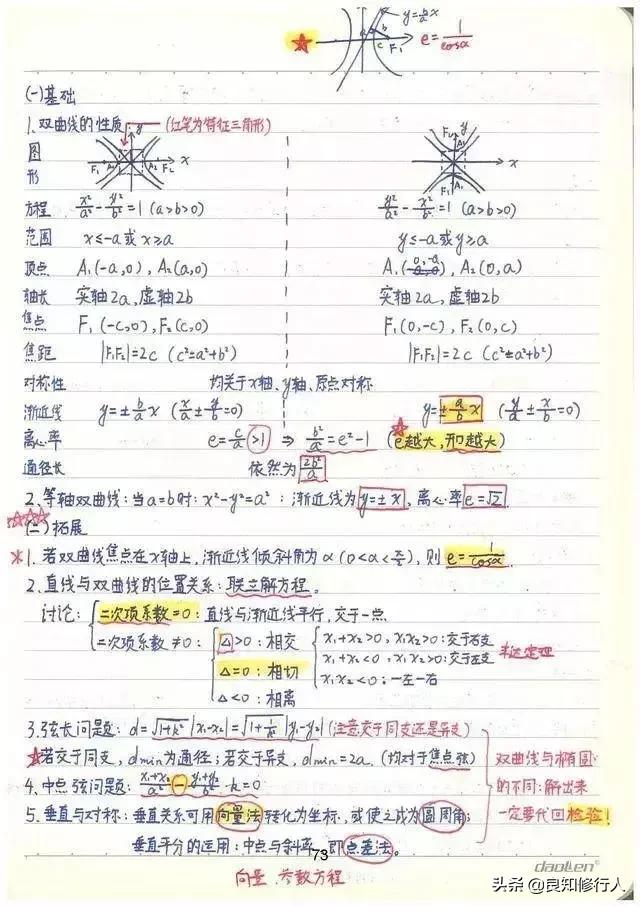 y=b/a x
a b c F₁
★ e=1/cosα
(一)基础
1.双曲线的性质 (红笔为特征三角形)
图形
y x F₁ A₁ A₂ F₂
F₂ y x A₁ F₁
方程 x²/a²-y²/b²=1 (a>b>0) y²/a²-x²/b²=1 (a>b>0)
范围 x≤-a或x≥a y≤-a或y≥a
顶点 A₁(-a,0),A₂(a,0) A₁(0,-a),A₂(0,a)
轴长 实轴2a,虚轴2b 实轴2a,虚轴2b
焦点 F₁(-c,0),F₂(c,0) F₁(0,-c),F₂(0,c)
焦距 |F₁F₂|=2c (c²=a²+b²) |F₁F₂|=2c (c²=a²+b²)
对称性 均关于x轴、y轴、原点对称
渐近线 y=±b/a x (x/a±y/b=0) y=±a/b x (y/a±x/b=0)
离心率 e=c/a>1 ⇒ b²/a²=e²-1 (★e越大,形越大)
通径长 依然为2b²/a
2.等轴双曲线:当a=b时:x²-y²=a²:渐近线为y=±x,离心率e=√2.
★★★
(二)拓展
*1.若双曲线焦点在x轴上,渐近线倾斜角为α(0<α<π/2),则e=1/cosα.
2.直线与双曲线的位置关系:联立解方程。
讨论:二次项系数=0:直线与渐近线平行,交于一点.
二次项系数≠0:△>0:相交 x₁+x₂>0,x₁x₂>0:交于右支
x₁+x₂<0,x₁x₂>0:交于左支 韦达定理
△=0:相切 x₁x₂<0:一左一右
△<0:相离
3.弦长问题:d=√1+k²|x₁-x₂|=√1+1/k²|y₁-y₂|(注意交于同支还是异支)
★若交于同支,dmin为通径;若交于异支,dmin=2a.(均对于焦点弦)
4.中点弦问题:x₁+x₂/a²-y₁+y₂/b²·k=0
5.垂直与对称:垂直关系可用向量法转化为坐标,或使之成为圆周角;
双曲线与椭圆
的不同:解出来
一定要代回检验!
垂直平分的运用:中点与斜率,即点差法。
73
向量、参数方程
daoLen®
头条@良知修行人